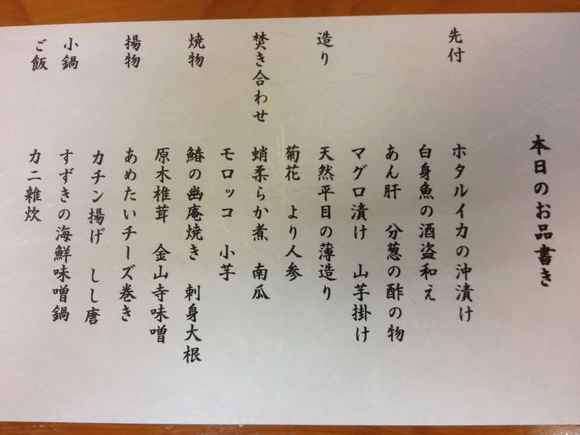 本日のお品書き
先付
ホタルイカの沖漬け
白身魚の酒盗和え
あん肝 分葱の酢の物
マグロ漬け 山芋掛け
造り
天然平目の薄造り
菊花 より人参
焚き合わせ
蛸柔らか煮 南瓜
モロッコ 小芋
焼物
鰆の幽庵焼き 刺身大根
原木椎茸 金山寺味噌
揚物
あめたいチーズ巻き
カチン揚げ しし唐
小鍋
すずきの海鮮味噌鍋
ご飯
カニ雑炊